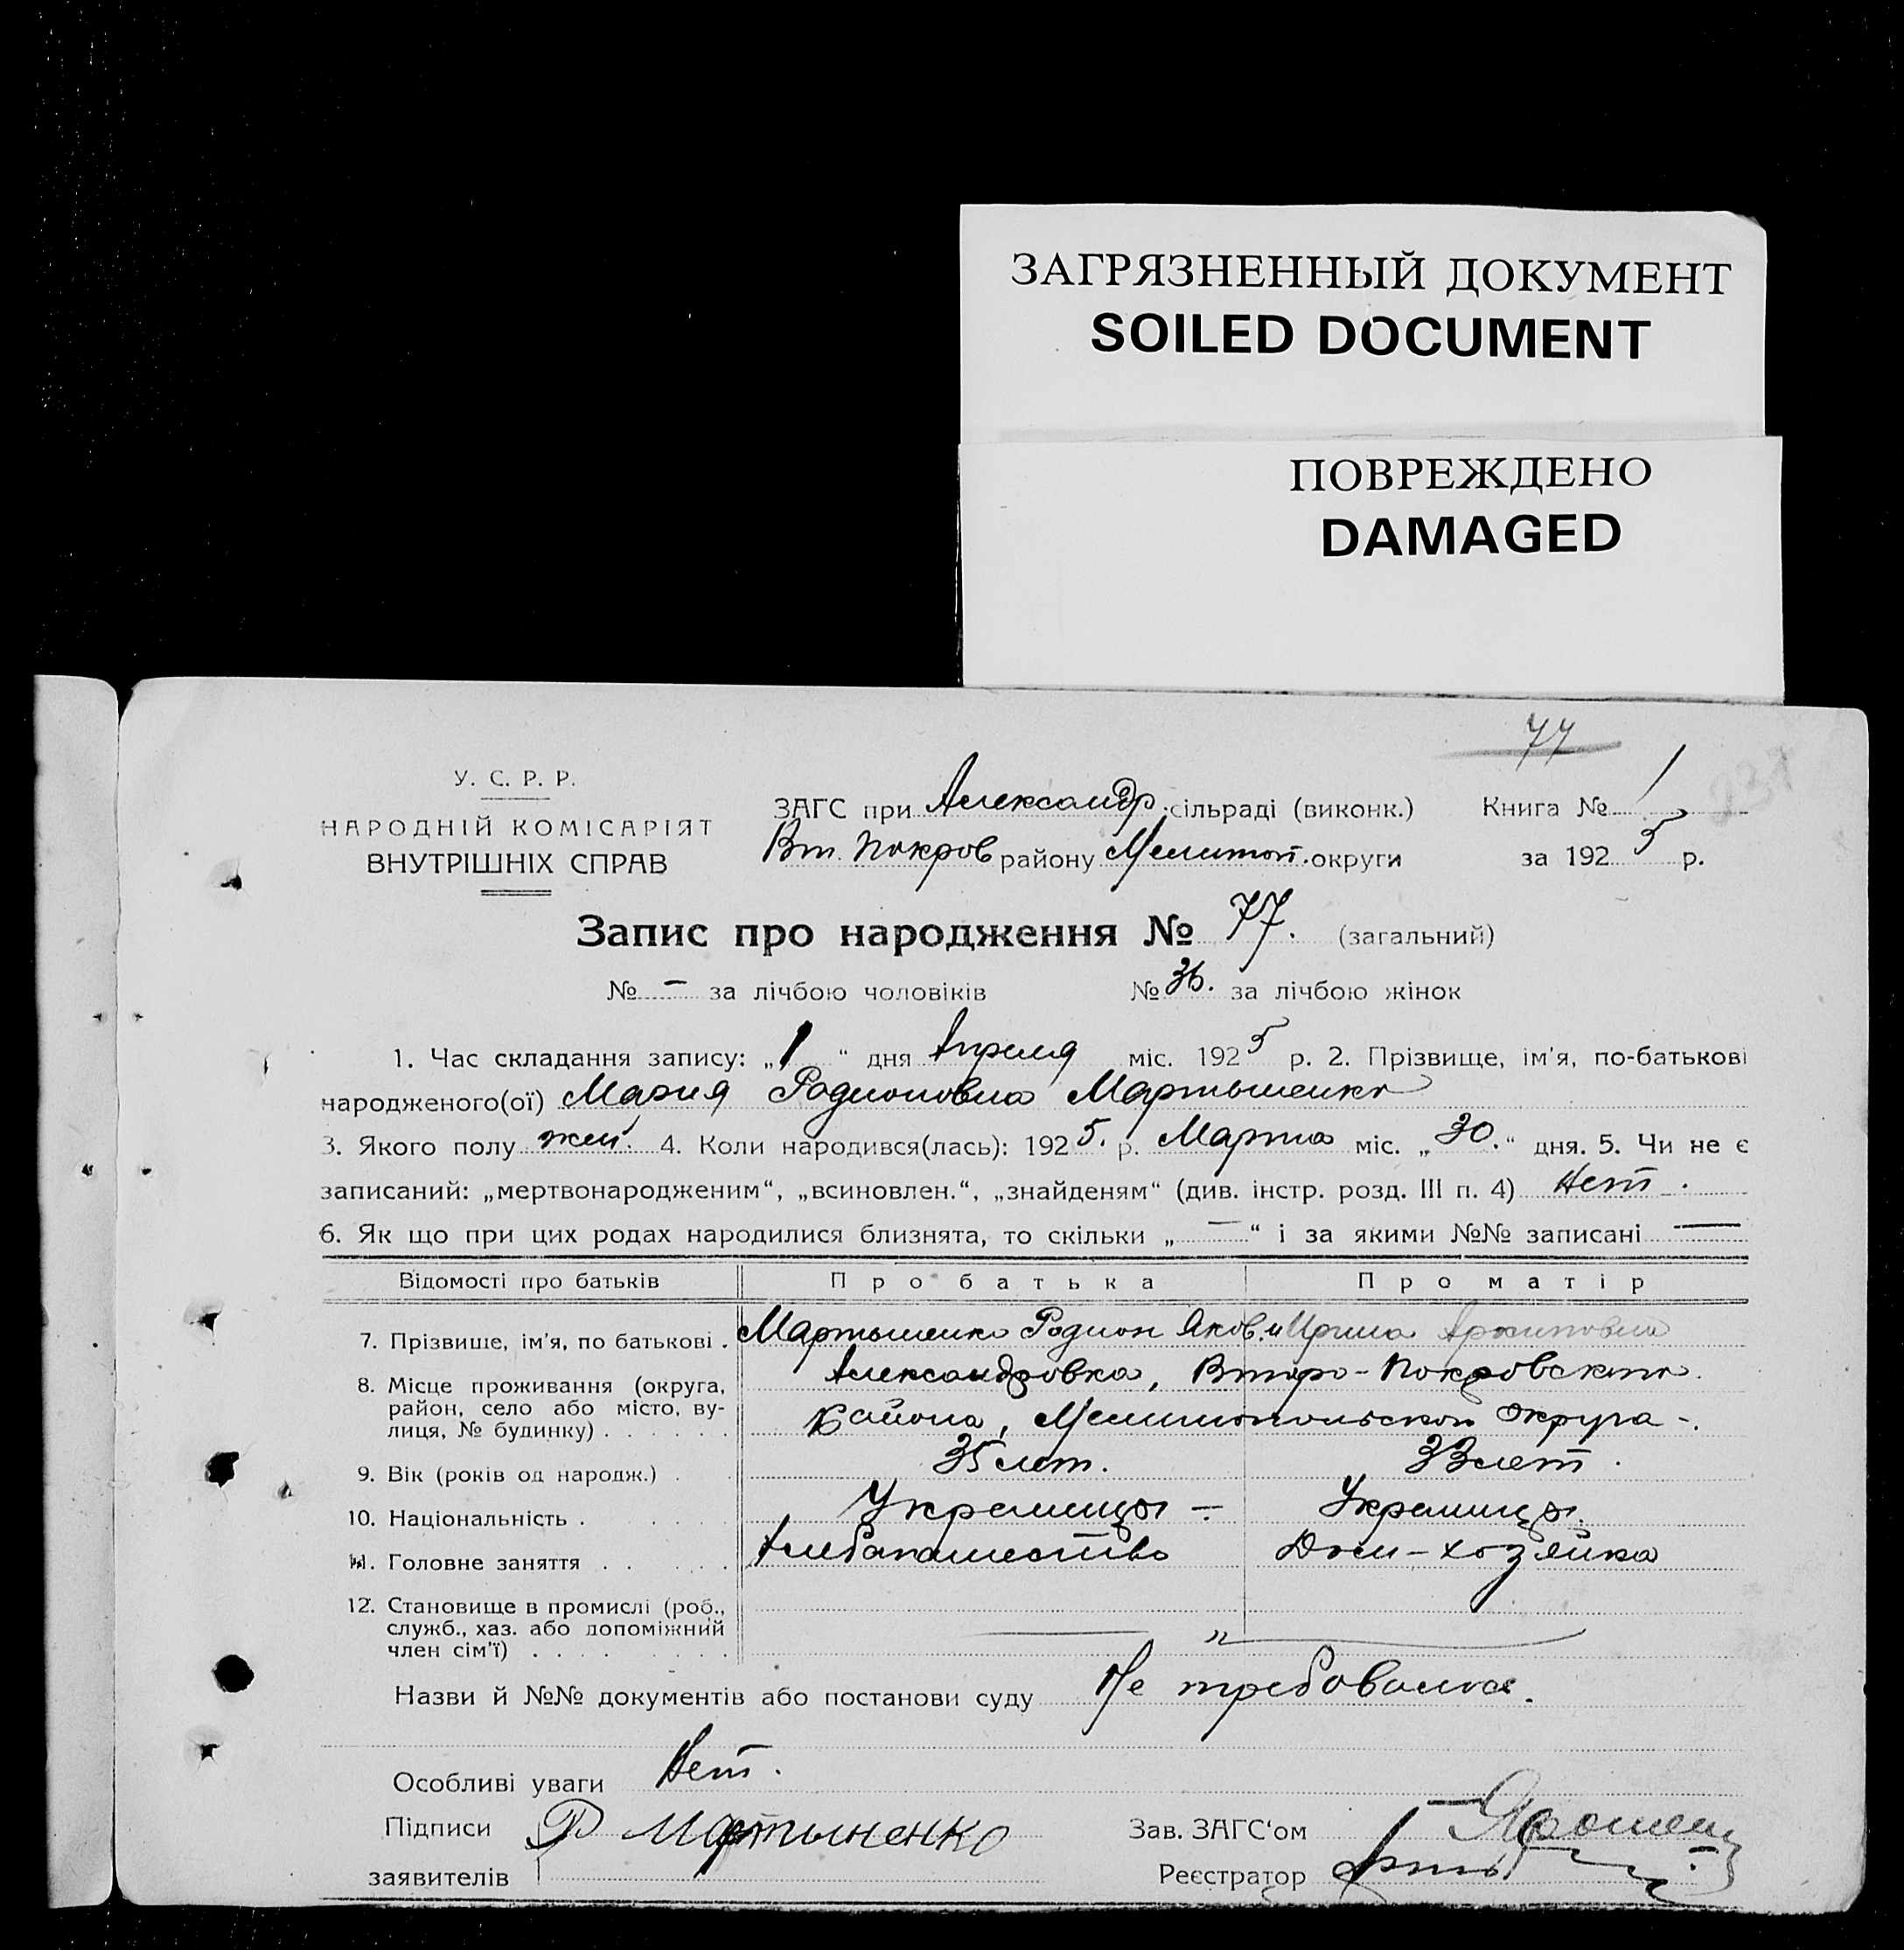 ЗАГРЯЗНЕННЫЙ ДОКУМЕНТ
SOILED DOCUMENT
ПОВРЕЖДЕНО
DAMAGED
77
У. С. Р. Р.
НАРОДНІЙ КОМІСАРІЯТ
ВНУТРІШНІХ СПРАВ
ЗАГС при Александр. сільраді (виконк.) Книга № 1
Вт. Покров району Мелитоп. округи за 1925 р.
Запис про народження № 77. (загальний)
№ – за лічбою чоловіків № 36. за лічбою жінок
1. Час складання запису: „1“ дня Апреля міс. 1925 р. 2. Прізвище, ім'я, по-батькові
народженого(ої) Мария Родионовна Мартыненко
3. Якого полу жен. 4. Коли народився(лась): 1925. р. Марта міс. „30.“ дня. 5. Чи не є
записаний: „мертвонародженим“, „всиновлен.“, „знайденям“ (див. інстр. розд. III п. 4) Нет.
6. Як що при цих родах народилися близнята, то скільки „—“ і за якими №№ записані —
Відомості про батьків Про батька Про матір
7. Прізвище, ім'я, по батькові . Мартыненко Родион Яков. и Ирина Архиповна
8. Місце проживання (округа, район, село або місто, вулиця, № будинку) . . . . . . Александровка, Второ-Покровского
района, Мелитопольской округа -.
9. Вік (років од народж.) . 35 лет. 33 лет.
10. Національність . Украинцы – Украинцы.
11. Головне заняття . . Хлебопашество Дом-хозяйка
12. Становище в промислі (роб., служб., хаз. або допоміжний член сім'ї) . . . . „
Назви й №№ документів або постанови суду Не требовалось.
Особливі уваги Нет.
Підписи Р Мартыненко Зав. ЗАГС‘ом
заявителів Реєстратор